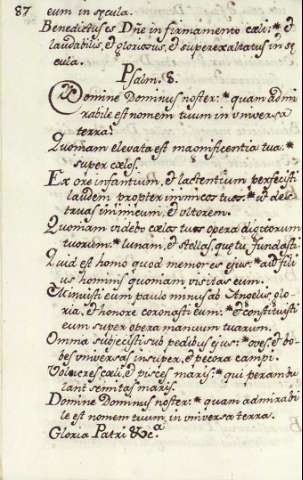 87 eum in sęcula.
Benedictus es Dñe in firmamento cæli: * et
laudabilis, et gloriosus, et superexaltatus in sę
cula.
Psalm. 8.
Domine Dominus noster: * quam admi
rabile est nomen tuum in universa
terra?
Quoniam elevata est magnificentia tua: *
super cælos.
Ex ore infantium, et lactentium perfecisti
laudem propter inimicos tuos: * ut des
truas inimicum, et ultorem.
Quoniam videbo cælos tuos opera digitorum
tuorum: * lunam, et stellas quę tu fundasti.
Quid est homo quod memor es ejus: * aut fili
us hominis quoniam visitas eum.
Minuisti eum paulo minus ab Angelis, glo
ria, et honore coronasti eum: * et constituisti
eum super opera manuum tuarum.
Omnia subjecisti sub pedibus ejus: * oves, et bo
bes universas insuper, et pecora campi.
Volucres cæli, et pisces maris: * qui perambu
lant semitas maris.
Domine Dominus noster: * quam admirabi
le est nomen tuum, in universa terra.
Gloria Patri &c.ª